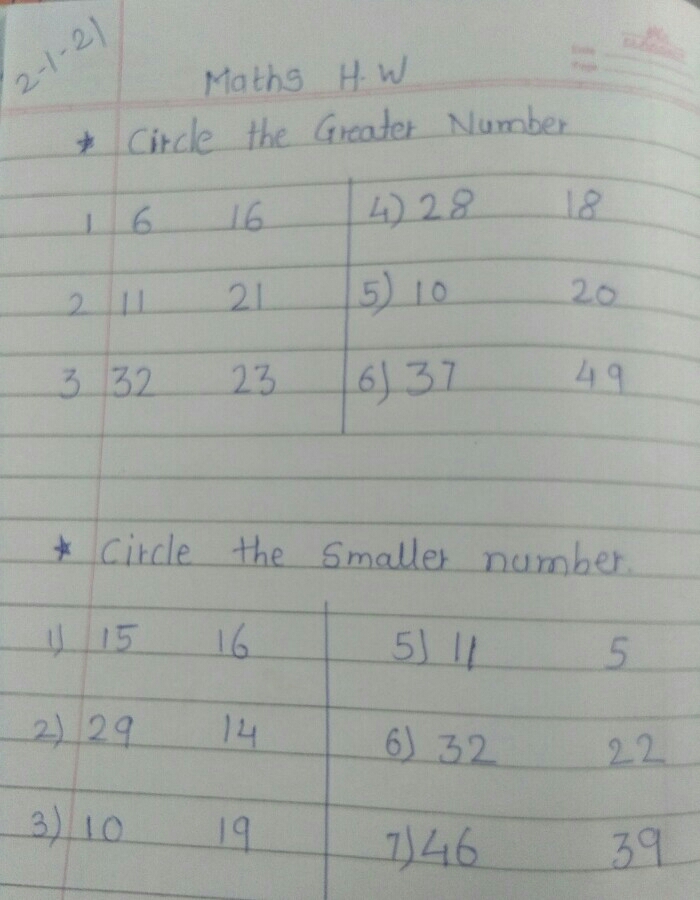 2-1-21
Maths H.W
* Circle the Greater Number
1 6 16 4) 28 18
2 11 21 5) 10 20
3 32 23 6) 37 49
* Circle the Smaller number.
1) 15 16 5) 11 5
2) 29 14 6) 32 22
3) 10 19 7) 46 39